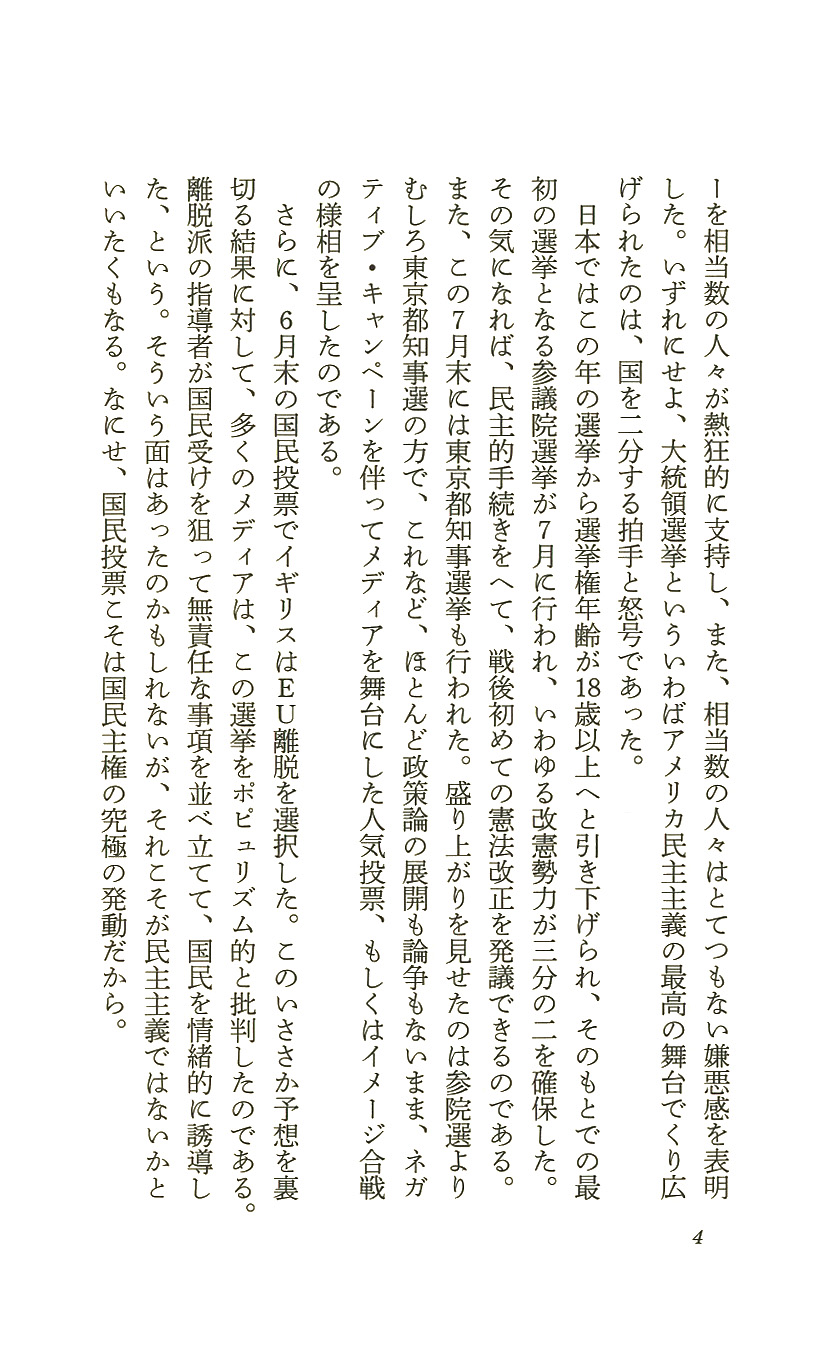 ーを相当数の人々が熱狂的に支持し、また、相当数の人々はとてつもない嫌悪感を表明
した。いずれにせよ、大統領選挙といういわばアメリカ民主主義の最高の舞台でくり広
げられたのは、国を二分する拍手と怒号であった。
日本ではこの年の選挙から選挙権年齢が18歳以上へと引き下げられ、そのもとでの最
初の選挙となる参議院選挙が7月に行われ、いわゆる改憲勢力が三分の二を確保した。
その気になれば、民主的手続きをへて、戦後初めての憲法改正を発議できるのである。
また、この7月末には東京都知事選挙も行われた。盛り上がりを見せたのは参院選より
むしろ東京都知事選の方で、これなど、ほとんど政策論の展開も論争もないまま、ネガ
ティブ・キャンペーンを伴ってメディアを舞台にした人気投票、もしくはイメージ合戦
の様相を呈したのである。
さらに、6月末の国民投票でイギリスはEU離脱を選択した。このいささか予想を裏
切る結果に対して、多くのメディアは、この選挙をポピュリズム的と批判したのである。
離脱派の指導者が国民受けを狙って無責任な事項を並べ立てて、国民を情緒的に誘導し
た、という。そういう面はあったのかもしれないが、それこそが民主主義ではないかと
いいたくもなる。なにせ、国民投票こそは国民主権の究極の発動だから。
4